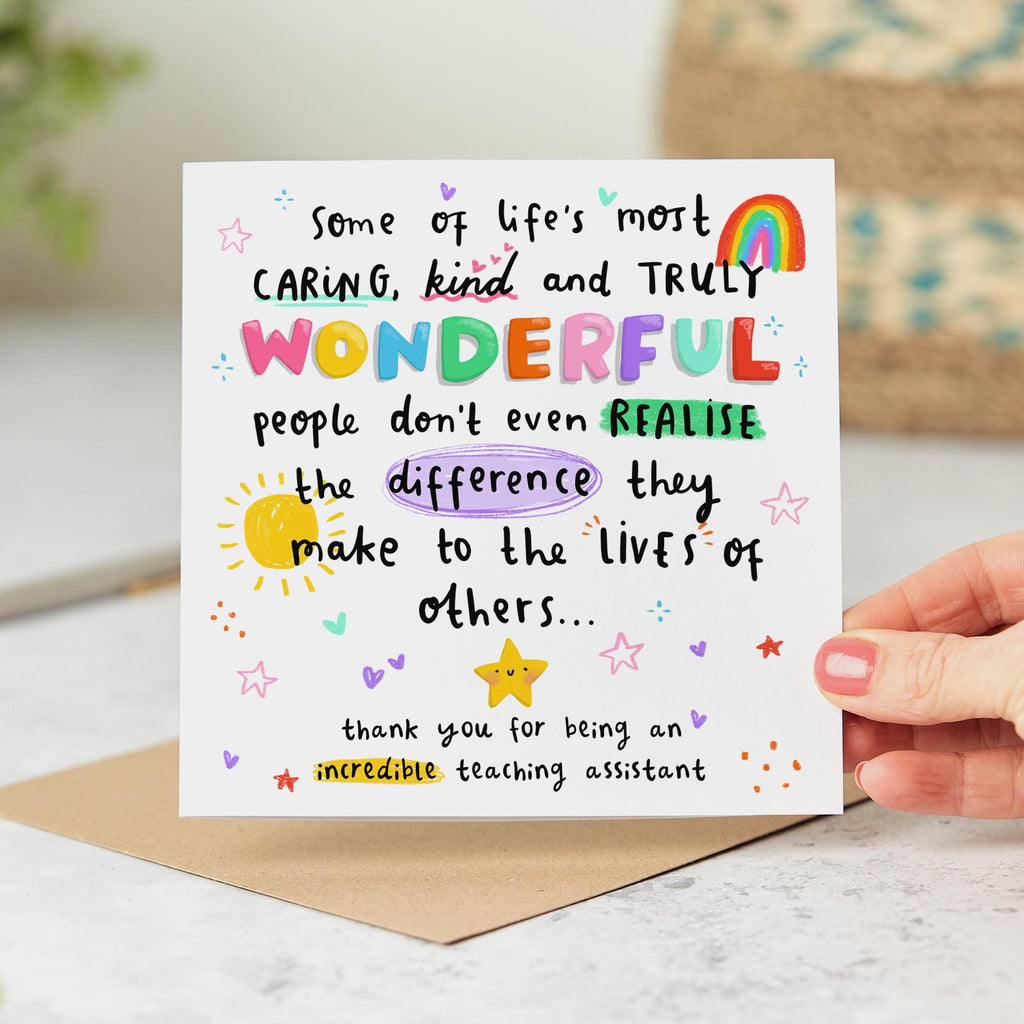 some of life's most
CARING, kind and TRULY
WONDERFUL
people don't even REALISE
the difference they
make to the LIVES of
others...
thank you for being an
incredible teaching assistant